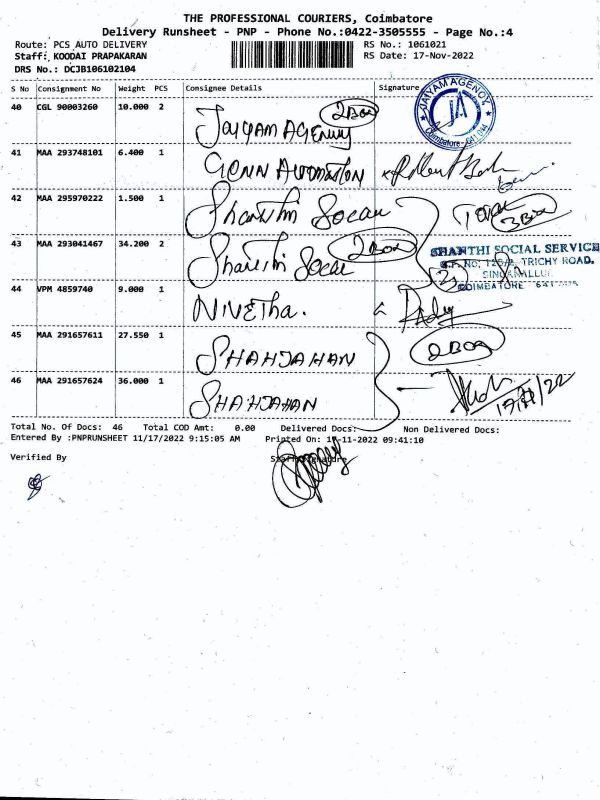 THE PROFESSIONAL COURIERS, Coimbatore
Delivery Runsheet - PNP - Phone No.:0422-3505555 - Page No.:4
Route: PCS AUTO DELIVERY RS No.: 1061021
Staff: KOODAI PRAPAKARAN RS Date: 17-Nov-2022
DRS No.: DCJB106102104
S No Consignment No Weight PCS Consignee Details Signature
JAIYAM AGENCY
JA
Coimbatore - 641 044
40 CGL 90003260 10.000 2 JAIYAM AGENCY 2 BOX
41 MAA 293748101 6.400 1 GENN AUTOMATION
42 MAA 295970222 1.500 1 Shanthi Social Total 3 Box
43 MAA 293041467 34.200 2 Shanthi Social 2 Box
SHANTHI SOCIAL SERVICE
TRICHY ROAD,
SINGANALLUR
COIMBATORE
44 VPM 4859740 9.000 1 NIVETHA.
45 MAA 291657611 27.550 1 SHAHJAHAN 2 BOX
46 MAA 291657624 36.000 1 SHAHJAHAN
Total No. Of Docs: 46 Total COD Amt: 0.00 Delivered Docs: Non Delivered Docs:
Entered By :PNPRUNSHEET 11/17/2022 9:15:05 AM Printed On: 17-11-2022 09:41:10
Verified By Staff Signature